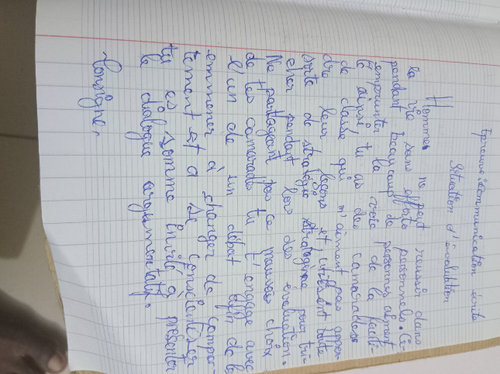 Epreuve de communication écrite
Situation d'évaluation
Homme ne peut réussir dans
la vie sans efforts personnels. Ce-
pendant beaucoup de personnes aiment
emprunter la voie de la facili-
té ainsi tu as des camarades
de classe qui n'aiment pas appren-
dre leur leçons et utilisent toute
sorte de stratégie pour tri-
cher pendant lors des evaluation.
Ne partageant pas ce mauvais choix
de tes camarades tu t'engage avec
l'un de un débat afin de l'
emmener à changer de compor-
tement et a se conscientiser
tu es somme invité a présenter
le dialogue argumentatif.
Consigne.